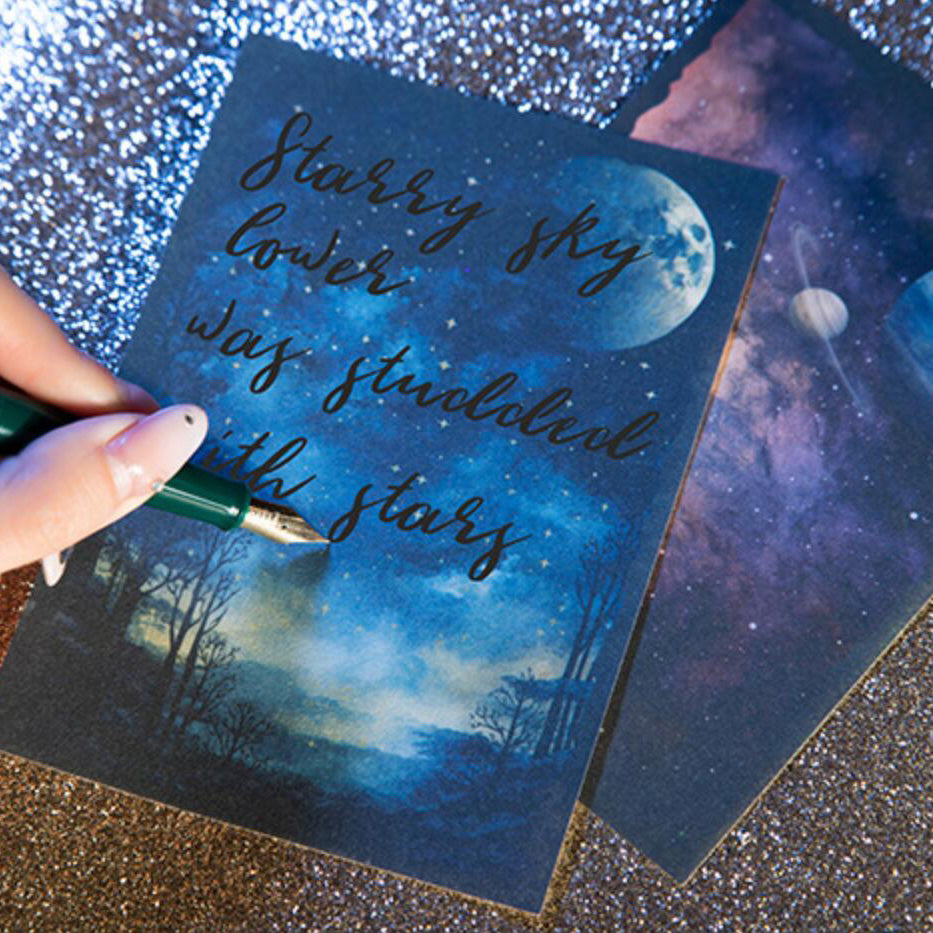 Starry sky
lower
was studded
with stars